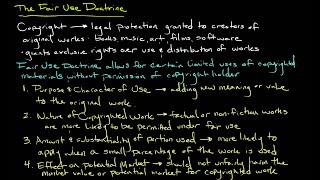 The Fair Use Doctrine
Copyright → legal protection granted to creators of
original works : books, music, art, films, software
· grants exclusive rights over use & distribution of works
Fair Use Doctrine allows for certain limited uses of copyrighted
materials without permission of copyright holder
1. Purpose & Character of Use → adding new meaning or value
to the original work
2. Nature of Copyrighted Work → factual or non-fiction works
are more likely to be permitted under fair use
3. Amount & substantiality of portion used → more likely to
apply when a small percentage of the work is used
4. Effect on Potential Market → should not unfairly harm the
market value or potential market for copyrighted work